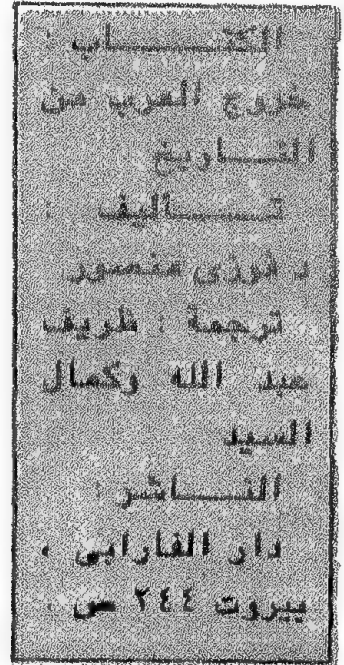 الكتـــــاب :
خروج العرب من
التـــاريخ
تـــــأليف :
د. فوزى منصور
ترجمة : ظريف
عبد الله وكمال
السيد
النـــــاشر :
دار الفارابى ،
بيروت ٢٤٤ ص .